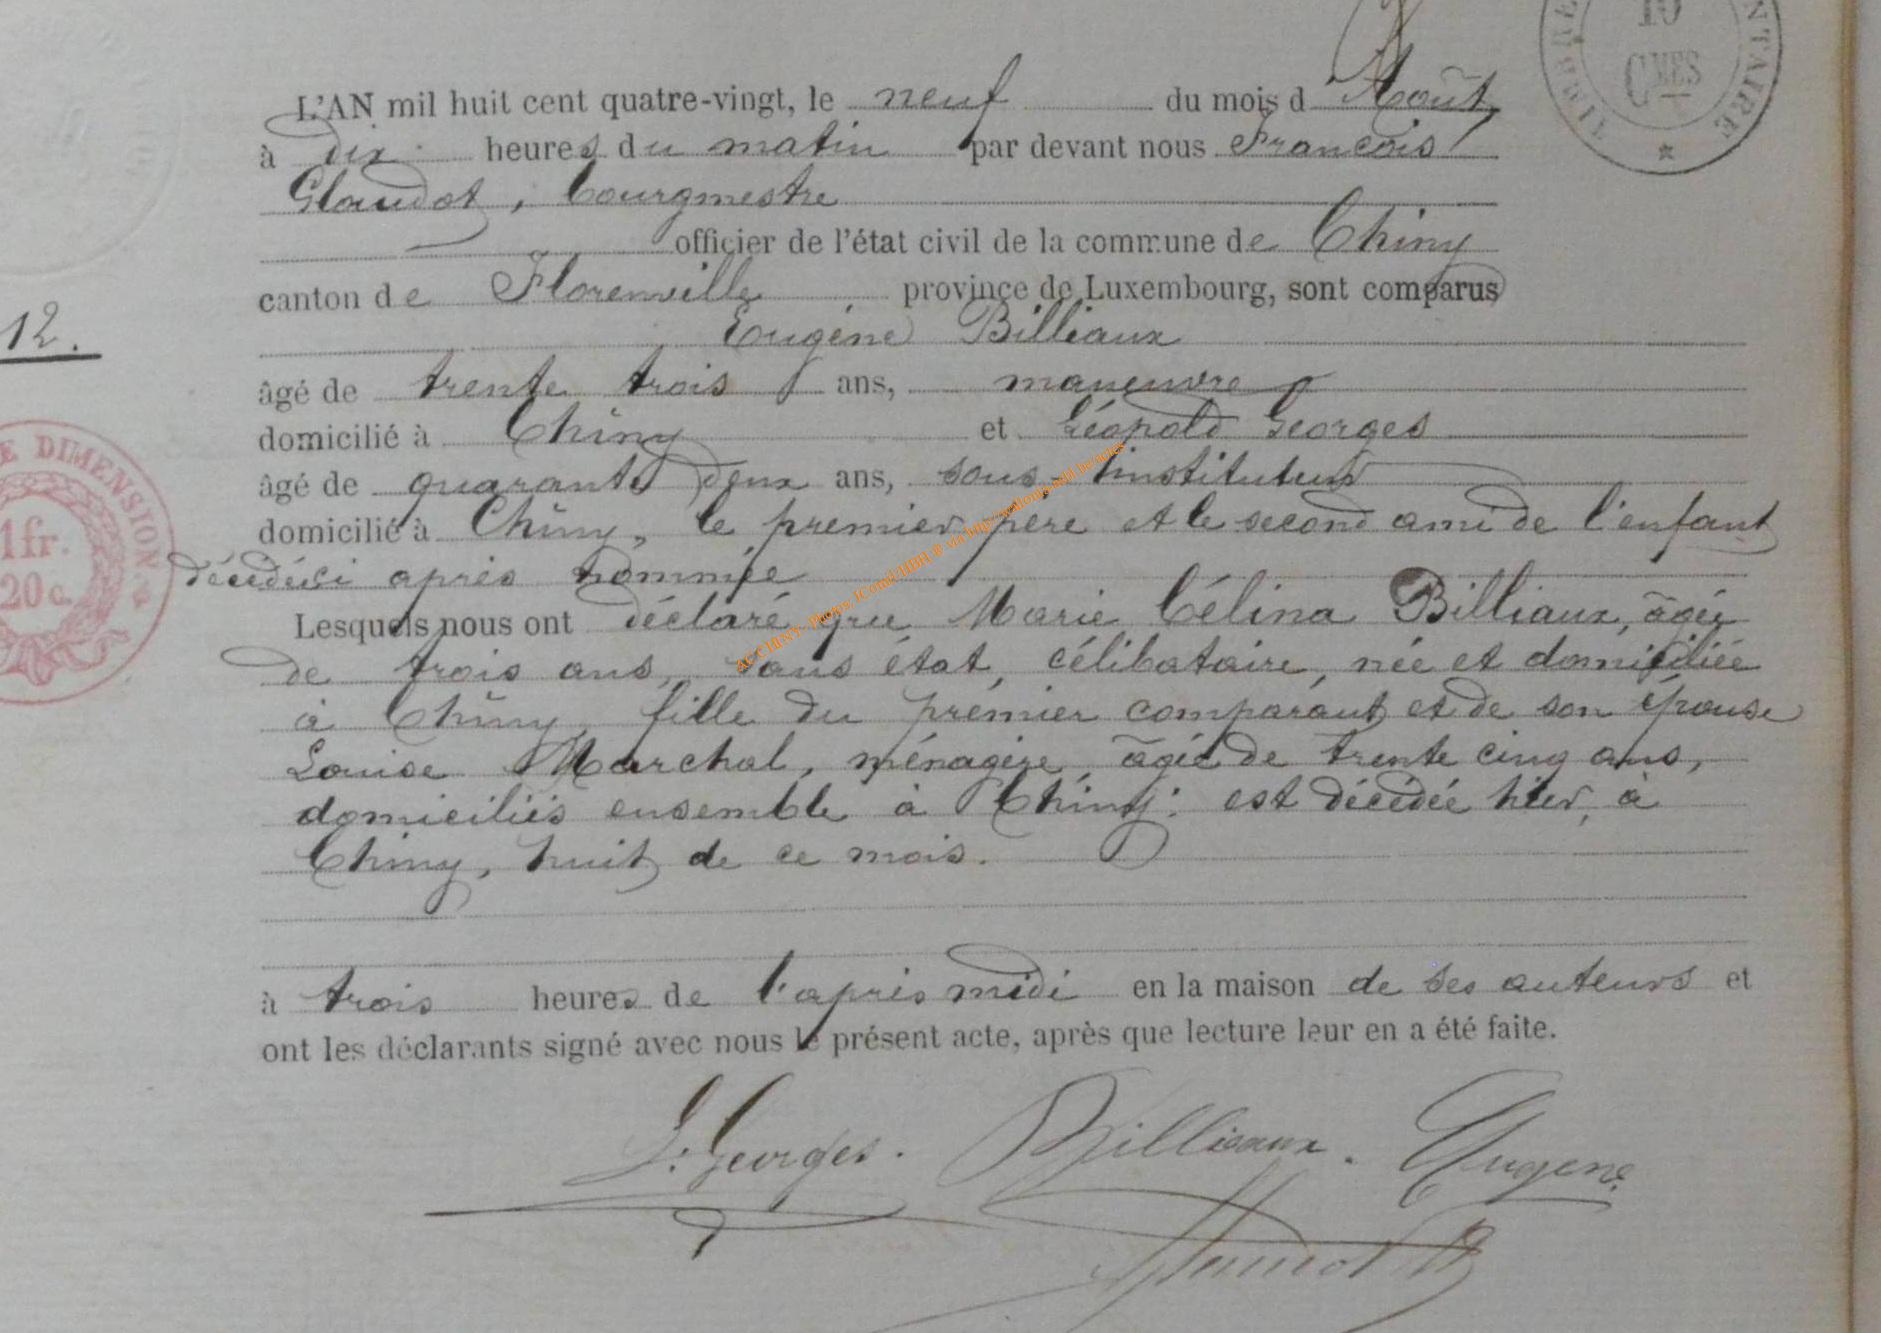 10
CMES
TIMBRE
NTAIRE
L'AN mil huit cent quatre-vingt, le neuf du mois d'Août
à dix heures du matin par devant nous François
Glaudot, bourgmestre
officier de l'état civil de la commune de Chiny
canton de Florenville province de Luxembourg, sont comparus
12.
Eugène Billiaux
âgé de trente trois ans, maneuvre
domicilié à Chiny et Léopold Georges
âgé de quarante deux ans, sous-instituteur
domicilié à Chiny, le premier père et le second ami de l'enfant
décédé ci après nommée
E DIMENSION
1fr.
20c.
Lesquels nous ont déclaré que Marie Célina Billiaux, âgée
de trois ans, sans état, célibataire, née et domiciliée
à Chiny, fille du premier comparant et de son épouse
Louise Marchal, ménagère, âgée de trente cinq ans,
domiciliés ensemble à Chiny: est décédée hier, à
Chiny, huit de ce mois.
à trois heures de l'après midi en la maison de ses auteurs et
ont les déclarants signé avec nous le présent acte, après que lecture leur en a été faite.
L. Georges. Billiaux. Eugene.